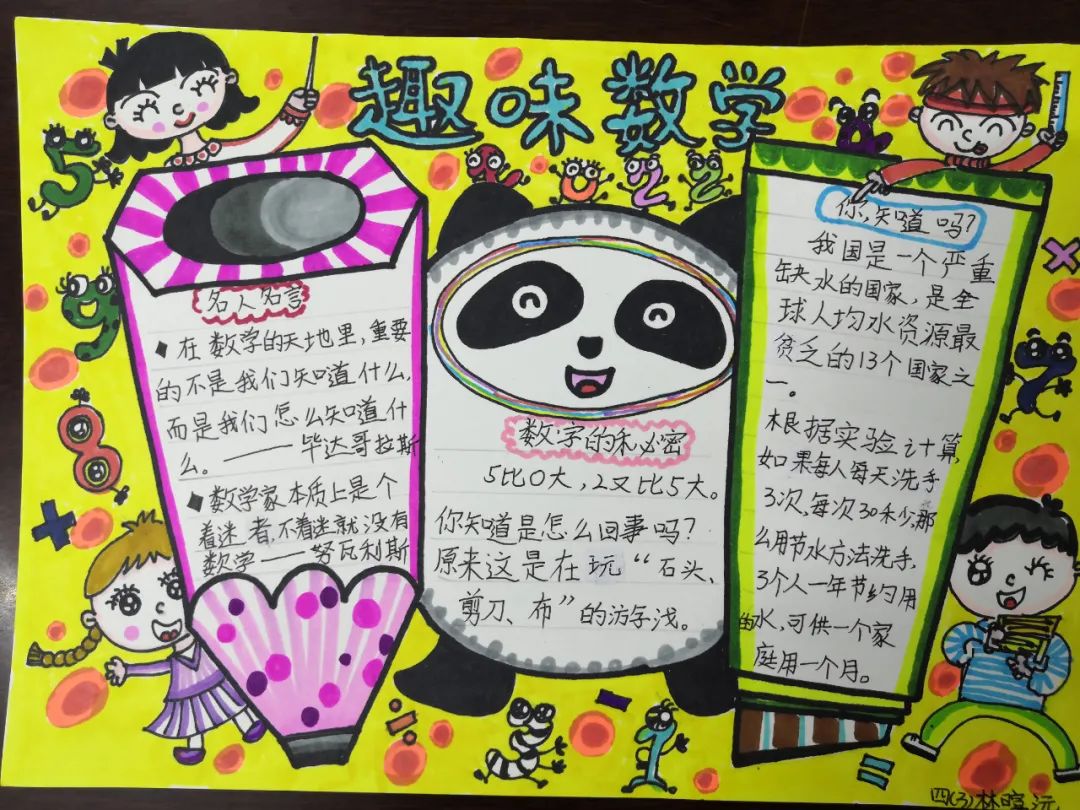 趣味数学
2022
名人名言
◆在数学的天地里,重要
的不是我们知道什么,
而是我们怎么知道什
么。——毕达哥拉斯
◆数学家本质上是个
着迷者,不着迷就没有
数学——努瓦利斯
数字的秘密
5比0大,2又比5大。
你知道是怎么回事吗?
原来这是在玩“石头、
剪刀、布”的游戏。
你知道吗?
我国是一个严重
缺水的国家,是全
球人均水资源最
贫乏的13个国家之
一。
根据实验计算,
如果每人每天洗手
3次,每次30秒,那
么用节水方法洗手,
3个人一年节约用
的水,可供一个家
庭用一个月。
5
9
8
+
×
2
÷
-
1
=
四(3)林